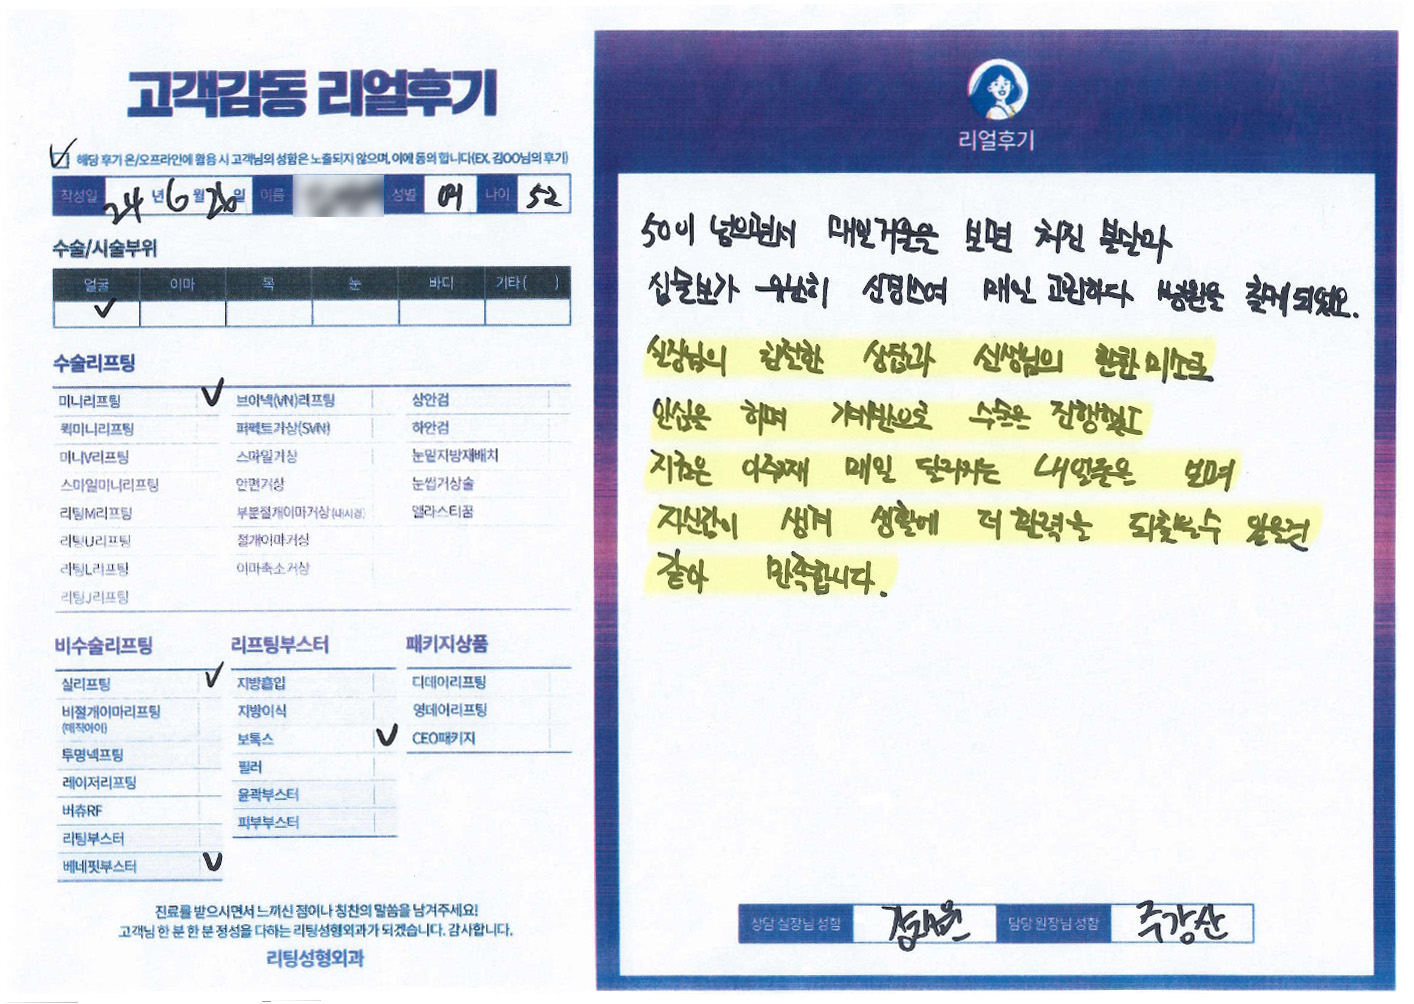 고객감동 리얼후기
해당 후기 온/오프라인에 활용 시 고객님의 성함은 노출되지 않으며, 이에 동의 합니다(EX. 김OO님의 후기)
작성일 24 년 6 월 26 일 이름 성별 여 나이 52
수술/시술부위
얼굴 이마 목 눈 바디 기타( )
수술리프팅
미니리프팅 브이넥(VN)리프팅 상안검
퀵미니리프팅 퍼펙트거상(SVN) 하안검
미니V리프팅 스마일거상 눈밑지방재배치
스마일미니리프팅 안면거상 눈썹거상술
리팅M리프팅 부분절개이마거상(내시경) 엘라스티꿈
리팅U리프팅 절개이마거상
리팅L리프팅 이마축소거상
리팅J리프팅
비수술리프팅 리프팅부스터 패키지상품
실리프팅 지방흡입 디데이리프팅
비절개이마리프팅 지방이식 영데이리프팅
(매직아이)
투명넥프팅 보톡스 CEO패키지
레이저리프팅 필러
버츄RF 윤곽부스터
리팅부스터 피부부스터
베네핏부스터
진료를 받으시면서 느끼신 점이나 칭찬의 말씀을 남겨주세요!
고객님 한 분 한 분 정성을 다하는 리팅성형외과가 되겠습니다. 감사합니다.
리팅성형외과
리얼후기
50이 넘으면서 매일거울을 보면 처진 볼살과
심술보가 유난히 신경쓰여 매일 고민하다 병원을 찾게 되었어요.
실장님의 친절한 상담과 선생님의 환한 미소로
안심을 하며 가벼운맘으로 수술을 진행했고
지금은 이주째 매일 달라지는 내얼굴을 보며
자신감이 생겨 생활에 더 활력을 되찾을수 있을것
같아 만족합니다.
상담 실장님 성함 담당 원장님 성함 주강산